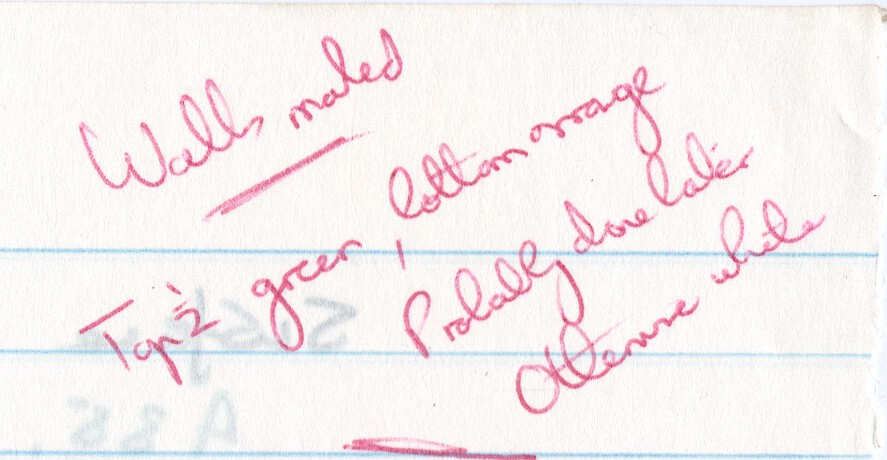 Walls
Top ½ green, bottom orange
Probably done later
Otherwise white